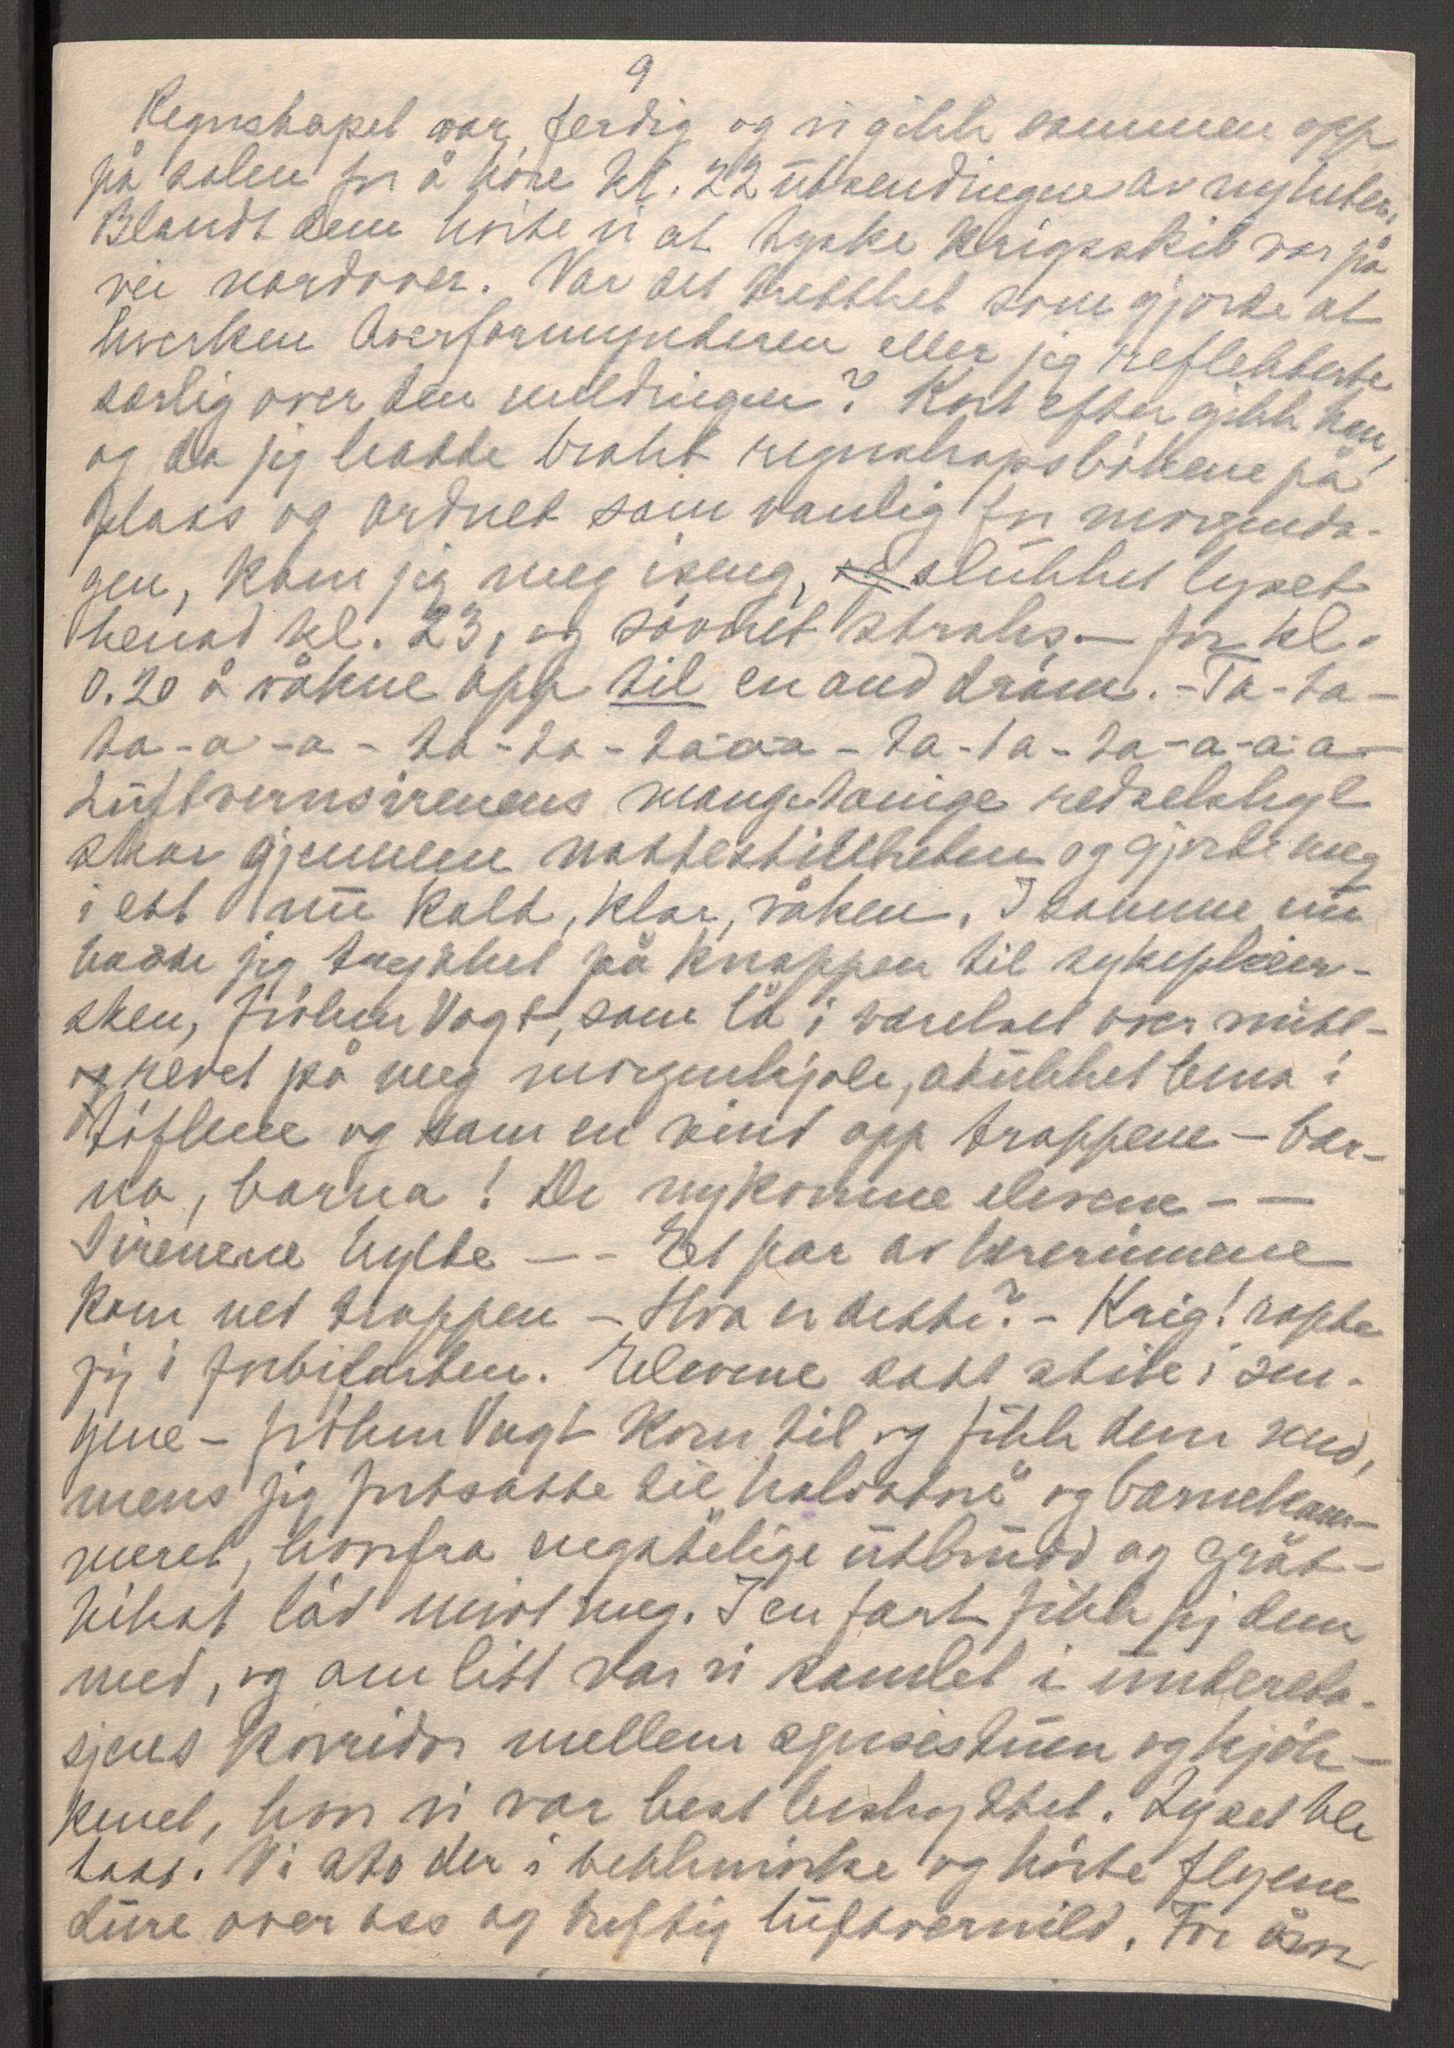 9
Regnskapet var ferdig og vi gikk sammen opp
på salen for å höre kl. 22 utsendingene av nyheter,
Blandt dem hörte vi at tyske krigsskib var på
vei nordover. Var det tretthet som gjorde at
hverken Overformynderen eller jeg reflekterte
særlig over den meldingen? Kort efter gikk han,
og da jeg hadde brakt regnskapsbökene på
plass og ordnet som vanlig for morgenda-
gen, kom jeg meg iseng, og slukket lyset
henad kl. 23, og sovnet straks – for kl.
0.20 å våkne opp til en ond dröm. – Ta-ta-
ta-a-a-a-ta-ta-ta-a-a-a-ta-ta-ta-a-a-a-a-
Luftvernsirenens mangetonige redselshyl
skar gjennem nattestillheten og gjorde meg
i ett nu kald, klar, våken. I samme nu
hadde jeg trykket på knappen til sykepleier-
sken, fröken Vogt, som lå i værelset over mitt –
og revet på meg morgenkjole, stukket bena i
töflene og som en vind opp trappene – bar-
na, barna! De nykomne elevene – –
Sirenene hylte – – Et par av lærerinnene
kom ned trappen – Hva er dette? – Krig! ropte
jeg i forbifarten. Elevene satt stive i sen-
gene – fröken Vogt kom til og fikk dem ned,
mens jeg fortsatte til "kvistene" og barnekam-
meret, hvorfra engstelige utbrudd og gråt-
hikst löd mot meg. I en fart fikk jeg dem
med, og om litt var vi samlet i undereta-
sjens korridor mellem spisestuen og kjök-
kenet, hvor vi var best beskyttet. Lyset ble
tatt. Vi sto der i bekkmörke og hörte flyene
dure over oss og heftig luftvernild. For åsn